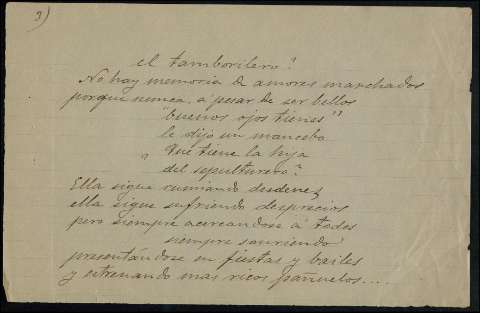 3)
el tamborilero?
No hay memoria de amores marchados
porque nunca, a pesar de ser bellos
"buenos ojos tienes"
le dijo un mancebo
¿Qué tiene la hija
del sepulturero?
Ella sigue rumiando desdenes
ella sigue sufriendo desprecios
pero siempre acercandose á todos
siempre sonriendo
presentándose en fiestas y bailes
y estrenando mas ricos pañuelos....